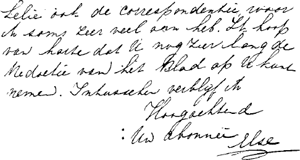 Lelie ook de correspondentie waar
ik soms zeer veel aan heb. Ik hoop
van harte dat U nog zeer lang de
Redactie van het Blad op U kunt
nemen. Intusschen verblijf ik
Hoogachtend
: Uw abonnée Else